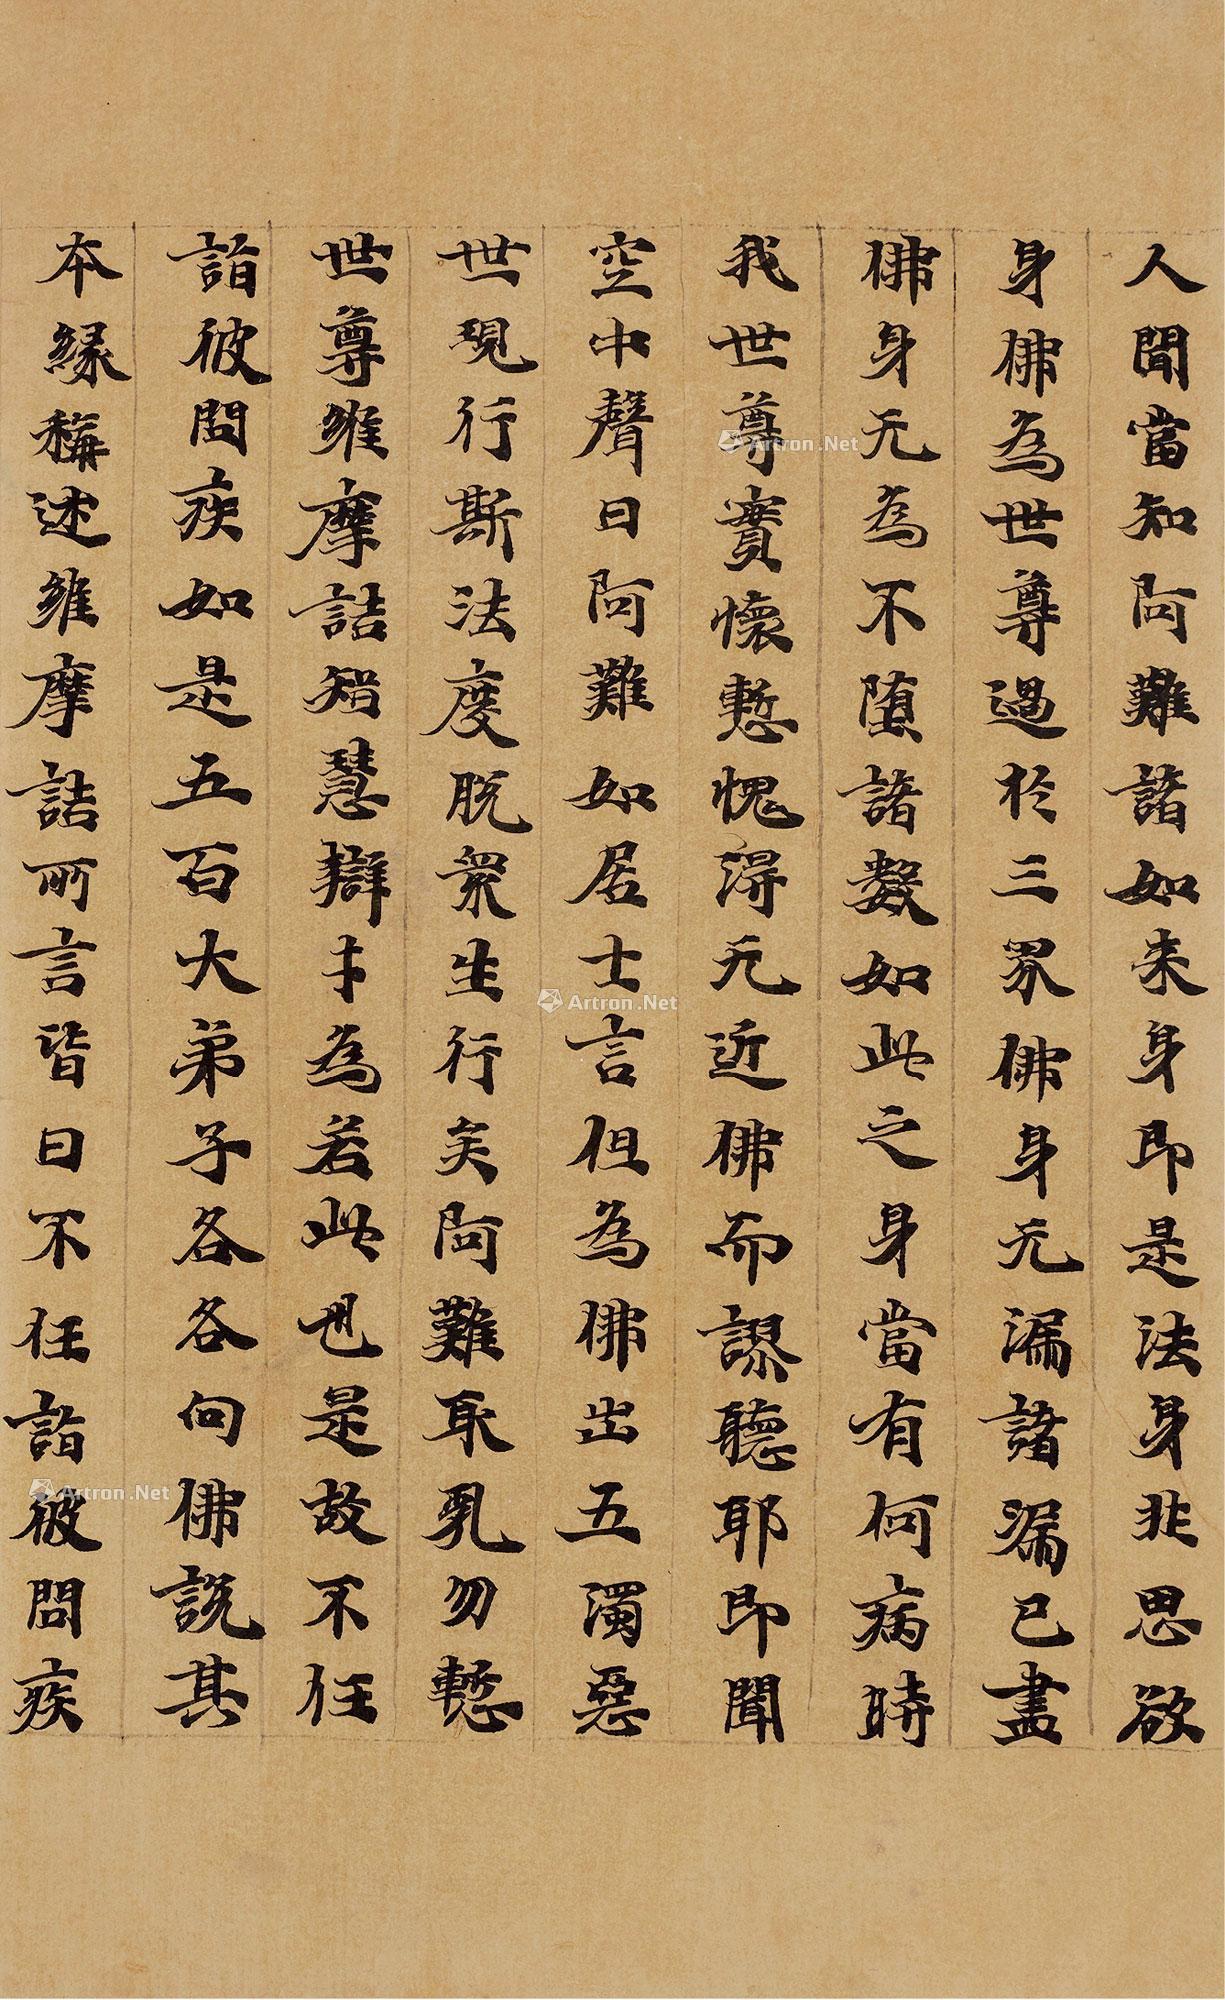 人聞當知阿難諸如来身即是法身非思欲
身佛為世尊過於三界佛身无漏諸漏已盡
佛身无為不墮諸數如此之身當有何病時
我世尊實懷慙愧得无近佛而謬聽耶即聞
空中聲曰阿難如居士言但為佛出五濁惡
世現行斯法度脫衆生行矣阿難取乳勿慙
世尊維摩詰智慧辯才為若此也是故不任
詣彼問疾如是五百大弟子各各向佛說其
本緣稱述維摩詰所言皆曰不任詣彼問疾
Artron.Net
Artron.Net
Artron.Net